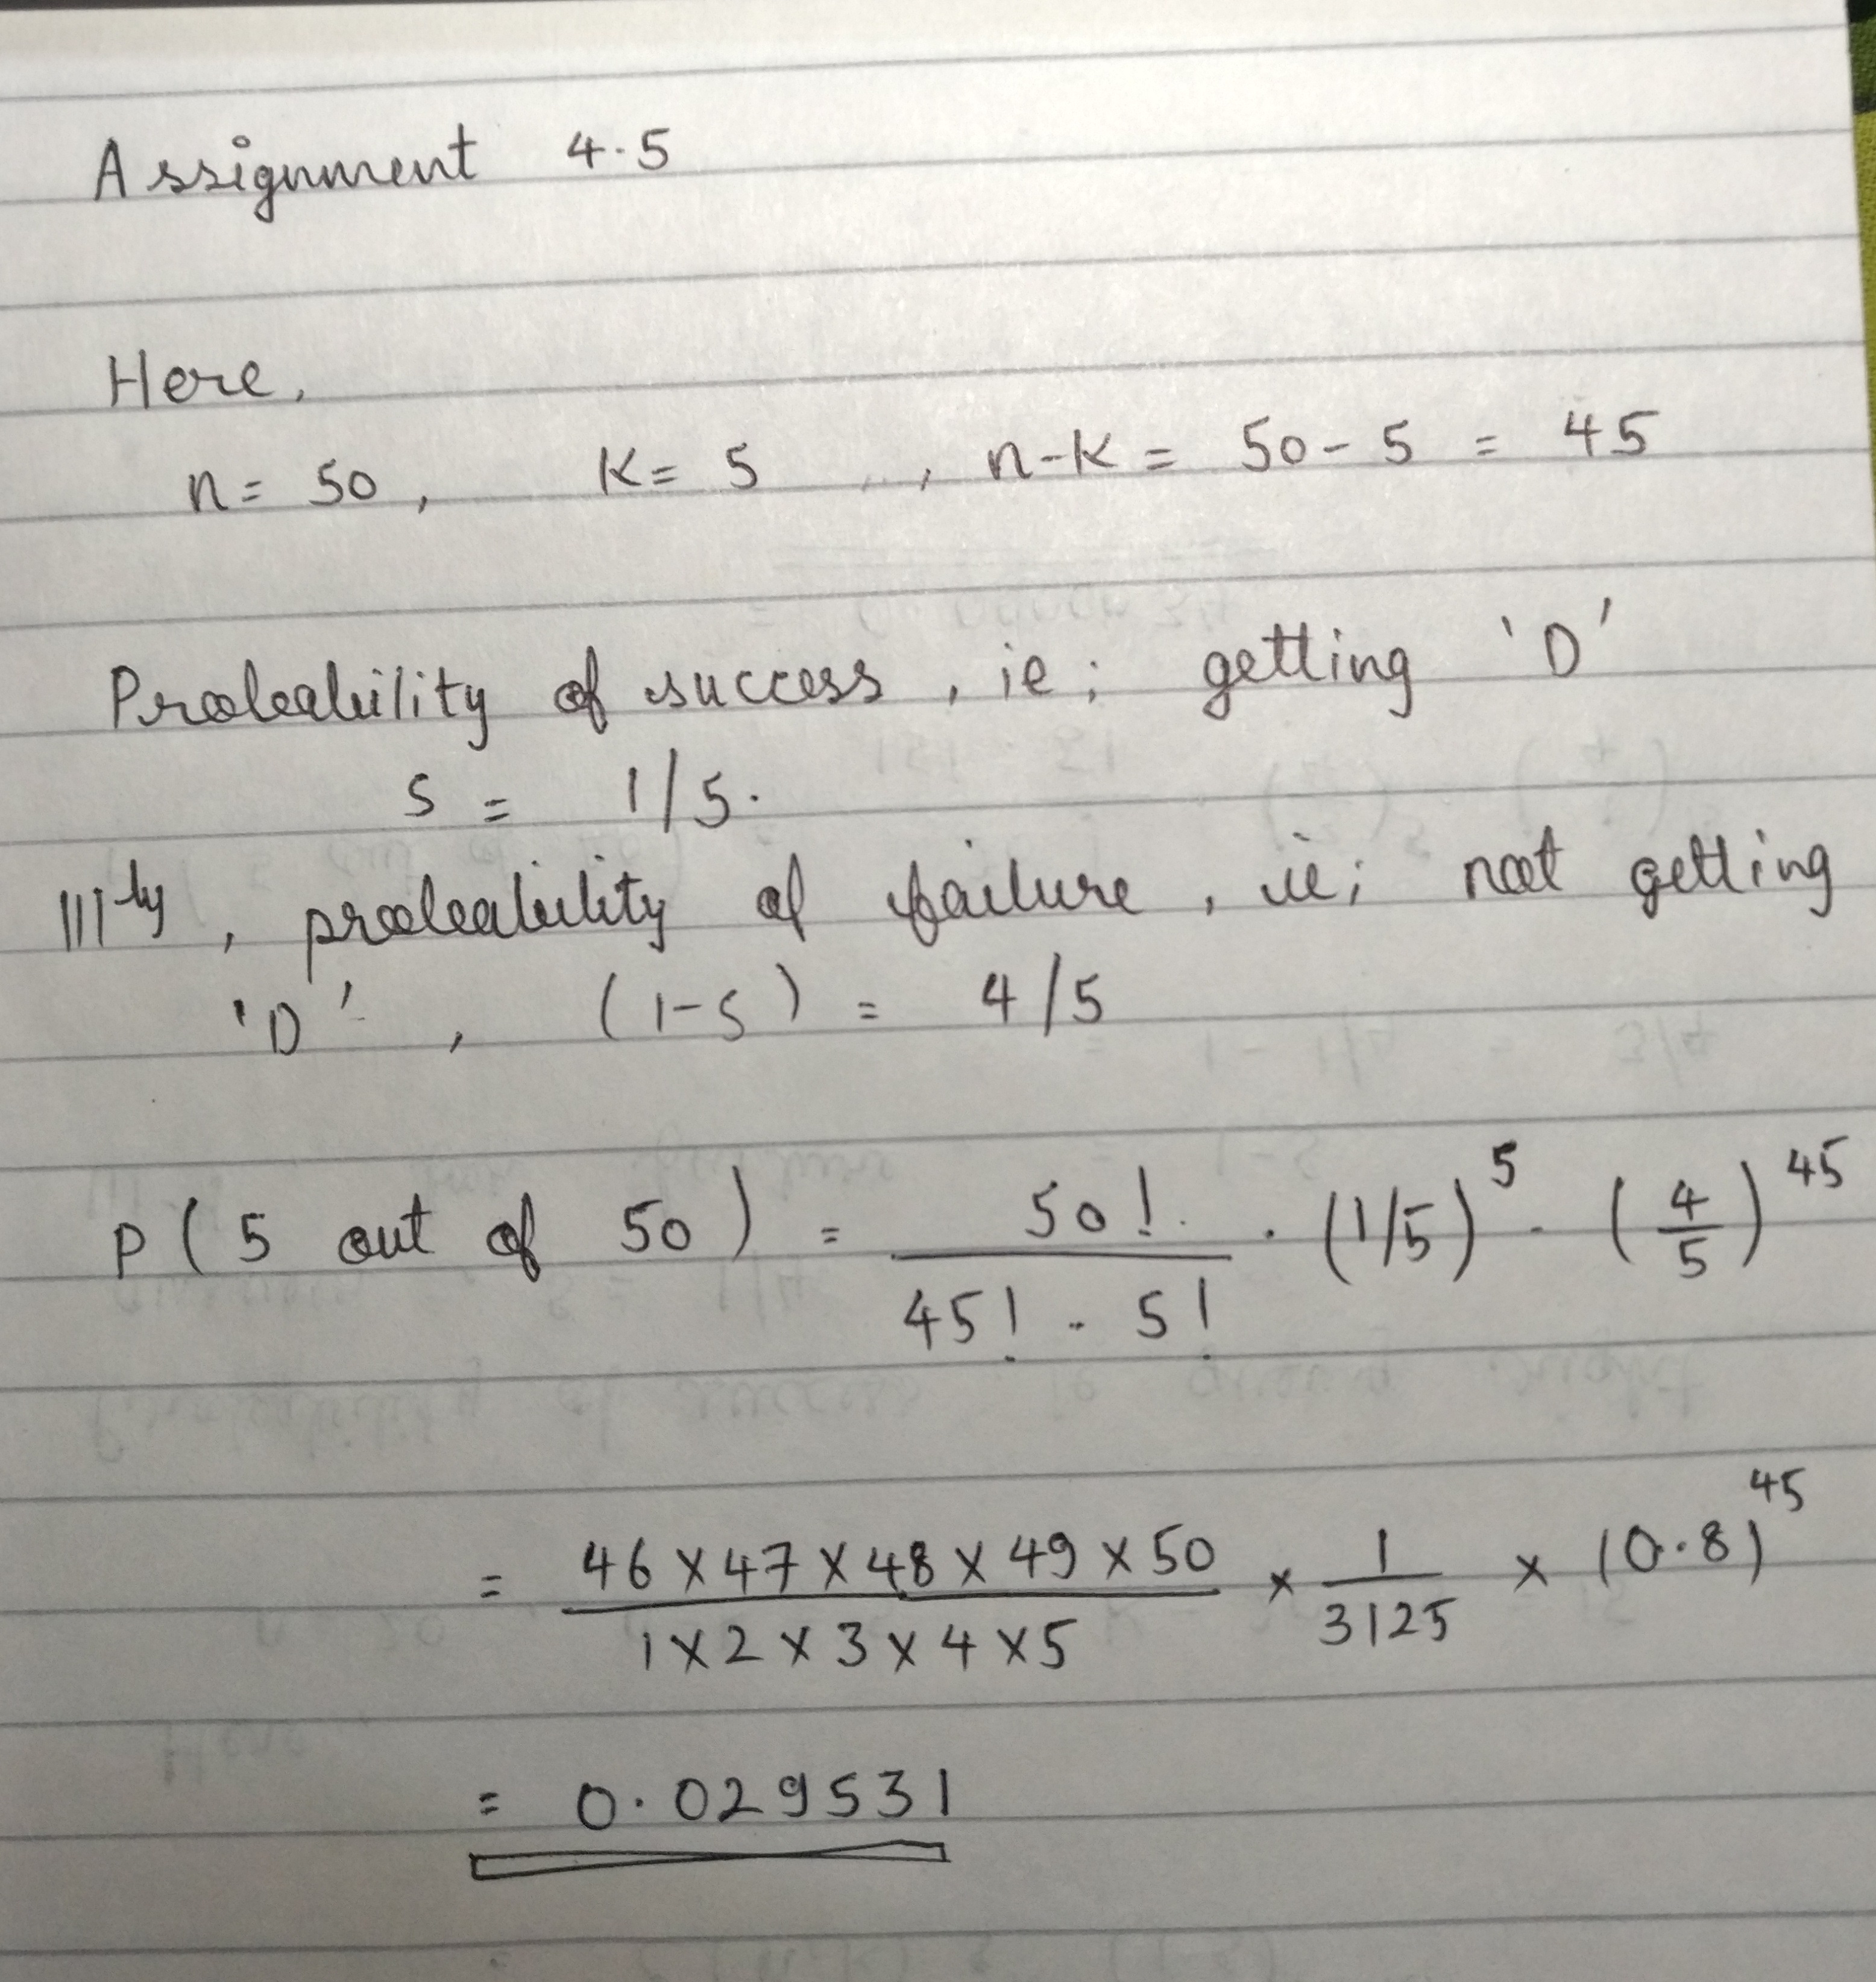 Assignment 4.5
Here,
n = 50, K = 5 , n-K = 50 - 5 = 45
Probability of success, ie; getting 'D'
s = 1/5.
|||ly, probability of failure, ie; not getting
'D', (1-s) = 4/5
P(5 out of 50) = 50! / 45! . 5! . (1/5)^5 . (4/5)^45
= 46 x 47 x 48 x 49 x 50 / 1 x 2 x 3 x 4 x 5 x 1/3125 x (0.8)^45
= 0.029531